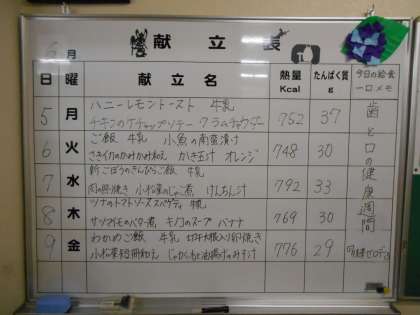 6月 献立表
日 曜 献立名 熱量 Kcal たんぱく質 g 今日の給食一口メモ
5 月 ハニーレモントースト 牛乳
チキンのケチャップソテー クラムチャウダー 752 37
6 火 ご飯 牛乳 小魚の南蛮漬け
さきイカのかみかみ和え かき玉汁 オレンジ 748 30
7 水 新ごぼうのきんぴらご飯 牛乳
肉の照り焼き 小松菜のじゃこ煮 けんちん汁 792 33
8 木 ツナのトマトソーススパゲティ 牛乳
サツマイモのバター煮 キノコのスープ バナナ 769 30
9 金 わかめご飯 牛乳 切干大根入り卵焼き
小松菜短冊和え じゃがいもと油揚げのみそ汁 776 29
歯と口の健康週間